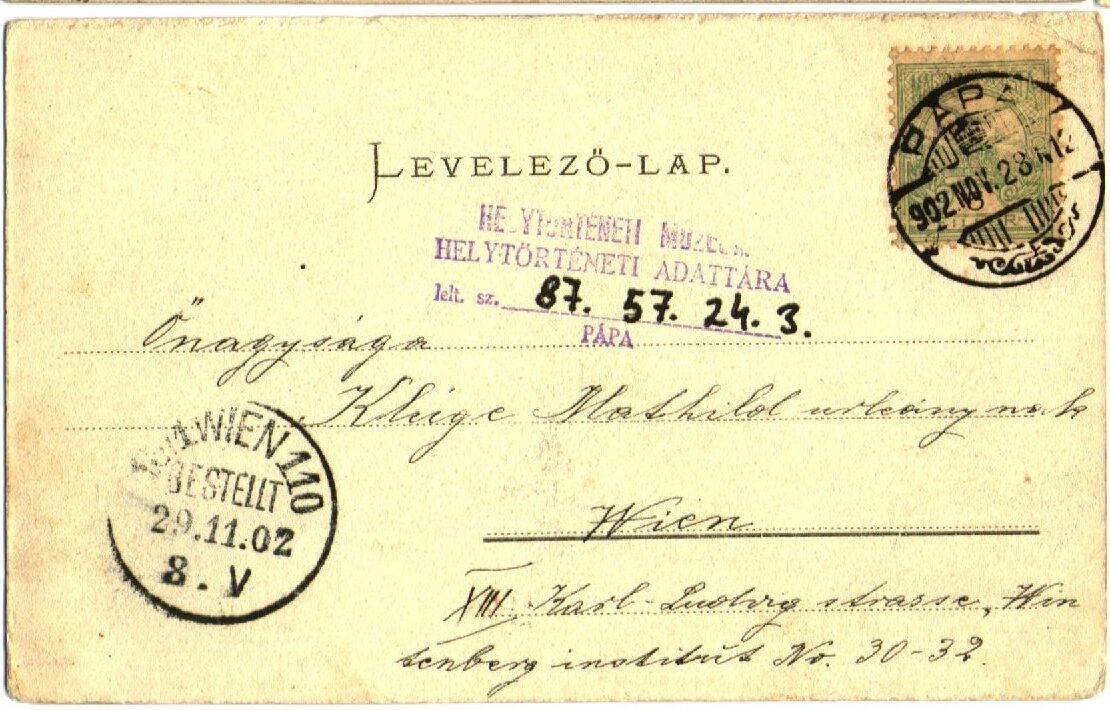 LEVELEZŐ-LAP.
PÁPA
902 NOV. 28
HELYTÖRTÉNETI
HELYTÖRTÉNETI ADATTÁRA
lelt. sz. 87. 57. 24. 3.
PÁPA
Őnagysága
Kleige Mathild urleánynak
WIEN 110
BESTELLT
29.11.02
8. V
Wien
XIII Karl-Ludwig strasse, Win
tenberg institut No. 30-32.